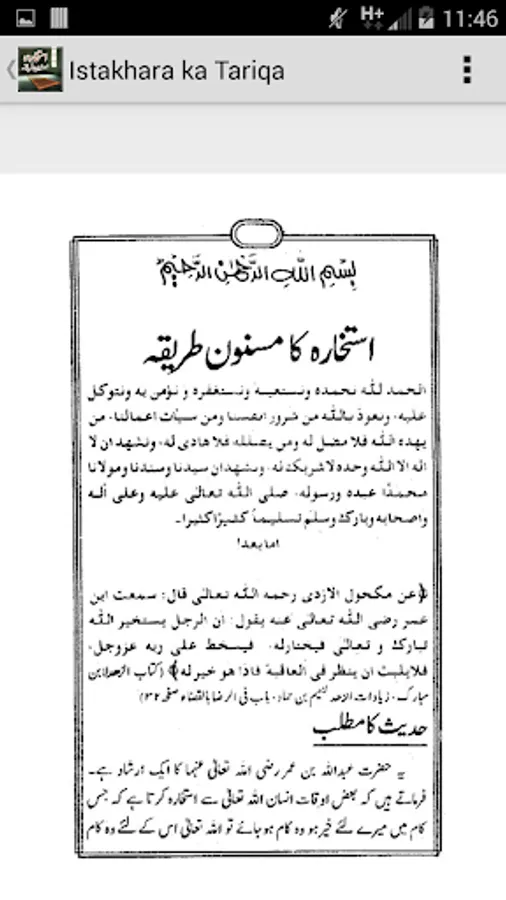 11:46
Istakhara ka Tariqa
بِسْمِ اللهِ الرَّحْمٰنِ الرَّحِيْمِ
استخارہ کا مسنون طریقہ
الحمد للّٰه نحمده ونستعينه ونستغفره و نؤمن به ونتوكل
عليه، ونعوذ باللّٰه من شرور انفسنا ومن سيئات اعمالنا، من
يهده اللّٰه فلا مضل له ومن يضلله فلا هادى له، ونشهد ان لا
اله الا اللّٰه وحده لا شريك له، ونشهد ان سيدنا وسندنا ومولانا
محمدًا عبده ورسوله، صلى اللّٰه تعالىٰ عليه وعلى آله
واصحابه وبارك وسلم تسليماً كثيرًا كثيرا۔
اما بعد!
﴿عن مكحول الازدى رحمه اللّٰه تعالىٰ قال: سمعت ابن
عمر رضى اللّٰه تعالىٰ عنه يقول: ان الرجل يستخير اللّٰه
تبارك و تعالىٰ فيختارله، فيسخط على ربه عزوجل،
فلا يلبث ان ينظر فى العاقبة فاذا هو خير له﴾ (کتاب الزھد لابن
مبارک، زیادات الزھد لنعیم بن حماد، باب فی الرضا بالقضاء صفحہ ۳۲)
حدیث کا مطلب
یہ حضرت عبداللہ بن عمر رضی اللہ تعالیٰ عنہما کا ایک ارشاد ہے۔
فرماتے ہیں کہ بعض اوقات انسان اللہ تعالیٰ سے استخارہ کرتا ہے کہ جس
کام میں میرے لئے خیر ہو وہ کام ہو جائے تو اللہ تعالیٰ اس کے لئے وہ کام